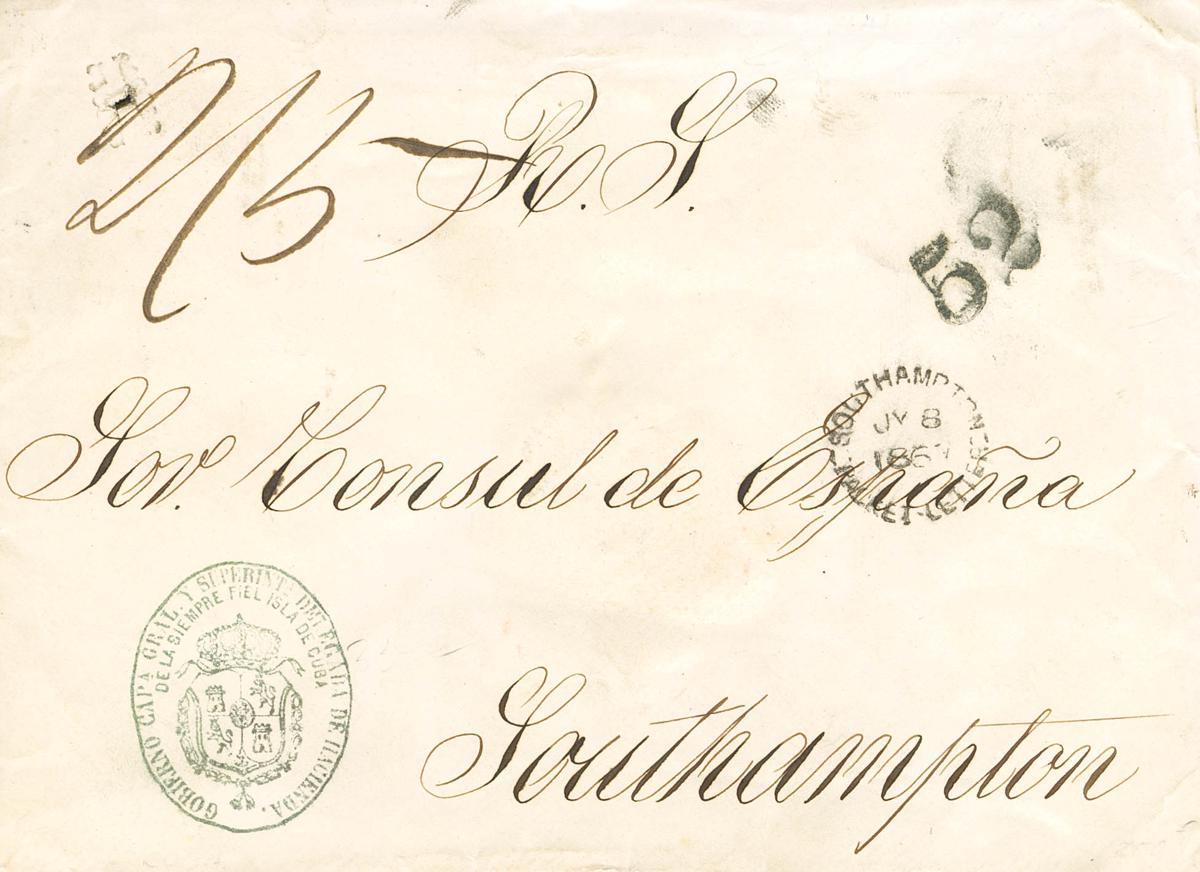 2/5 — R. S.
52
SOUTHAMPTON
JY 8
PACKET-LETTER
Sor. Consul de España
GOBIERNO CAPA GRAL. Y SUPERINTA DELEGADA DE HACIENDA.
DE LA SIEMPRE FIEL ISLA DE CUBA
Southampton